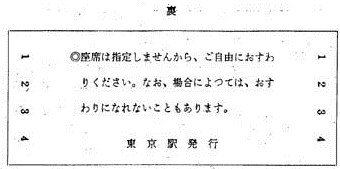 裏
◎座席は指定しませんから、ご自由におすわ
りください。なお、場合によつては、おす
わりになれないこともあります。
東京駅発行
1
2
3
4
1
2
3
4